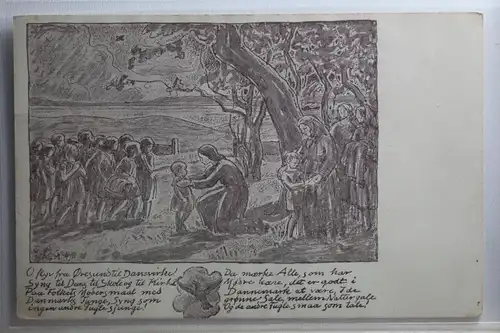 O flyv fra Øresund til Danevirke
Syng til Dans til Skole og til Kirke
Paa Folkets Mål med
Danmarks Tunge, Syng som
ingen andre Fugle sjunge!
Da mærke Alle, som har
Hjore kære, det er godt i
Dannemark at være, I de
grønne Sale, mellem Natter gale
Og de andre Fugle smaa som tale!